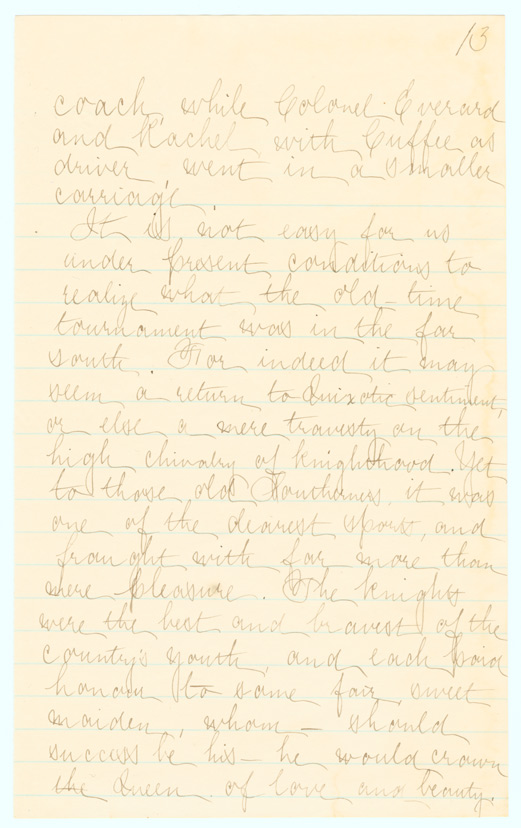 13
coach, while Colonel Everard
and Rachel, with Cuffee as
driver, went in a smaller
carriage.
It is not easy for us
under present conditions to
realize what the old-time
tournament was in the far
south. For indeed it may
seem a return to Quixotic sentiment,
or else a mere travesty on the
high chivalry of knighthood. Yet
to those old Southerners, it was
one of the dearest sports, and
fraught with far more than
mere pleasure. The knights
were the best and bravest of the
country's youth, and each paid
honour to some fair, sweet
maiden, whom – should
success be his – he would crown
the Queen of love and beauty.